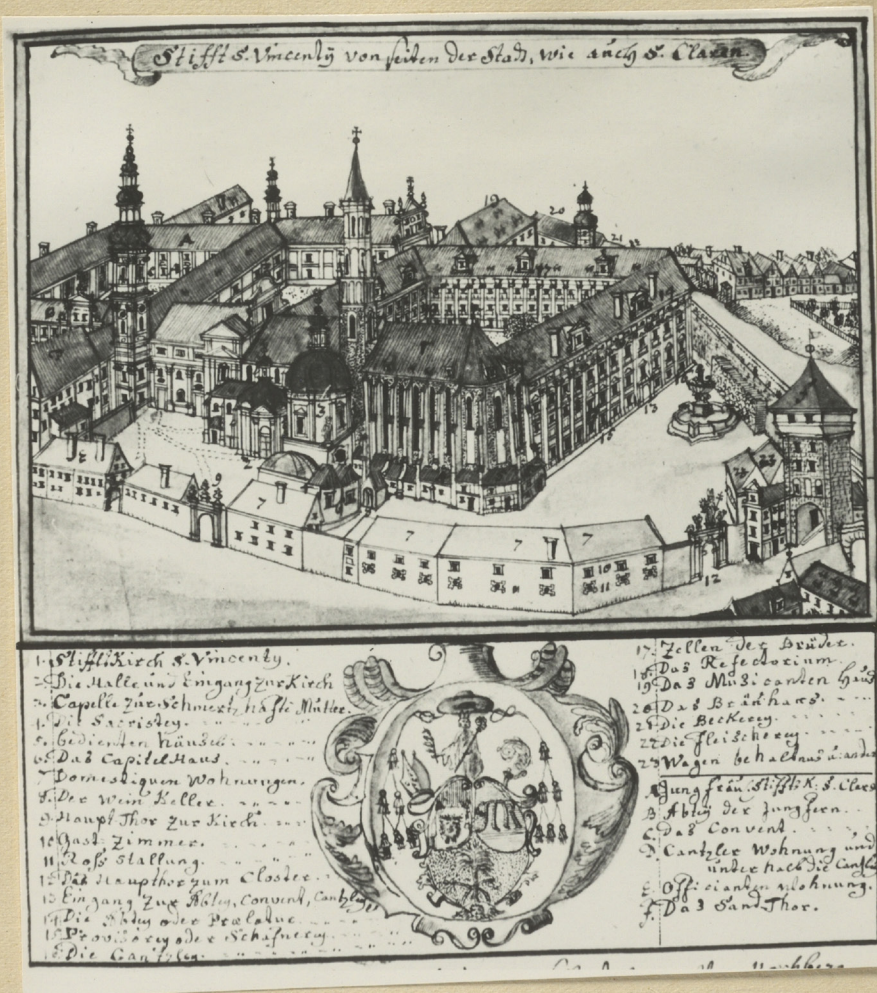 Stifft S. Vincentÿ von seiten der Stadt, wie auch S. Claren.
1. StifftsKirch S. Vincenty.
2. Die Halle und Eingang zur Kirch
3. Capelle zur Schmertzhafften Mütter.
4. Die Sacristey.
5. Bedienten Häuser.
6. Das CapitelHaus.
7. Domestiquen Wohnungen.
8. Der Wein Keller.
9. Haupt Thor zur Kirch.
10. Gast-Zimmer.
11. Ross Stallung.
12. Das Haupthor zum Closter.
13. Eingang zur Abtey, Convent, Cantzley
14. Die Abtey oder Prælatur.
15. Provisorey oder Schafnerey.
16. Die Cantzley.
17. Zellen der Brüder.
18. Das Refectorium.
19. Das Musicanten Hauß
20. Das Bräuhaus.
21. Die Beckerey.
22. Die Fleischerey.
23. Wagen behaltnus u. ander
A. Jungfrau. Stiffts K. S. Clara
B. Abtey der Jungfern.
C. Das Convent.
D. Cantzler Wohnung und
unterhalb die Cantzley
E. Officianten Wohnung.
F. Das Sand Thor.